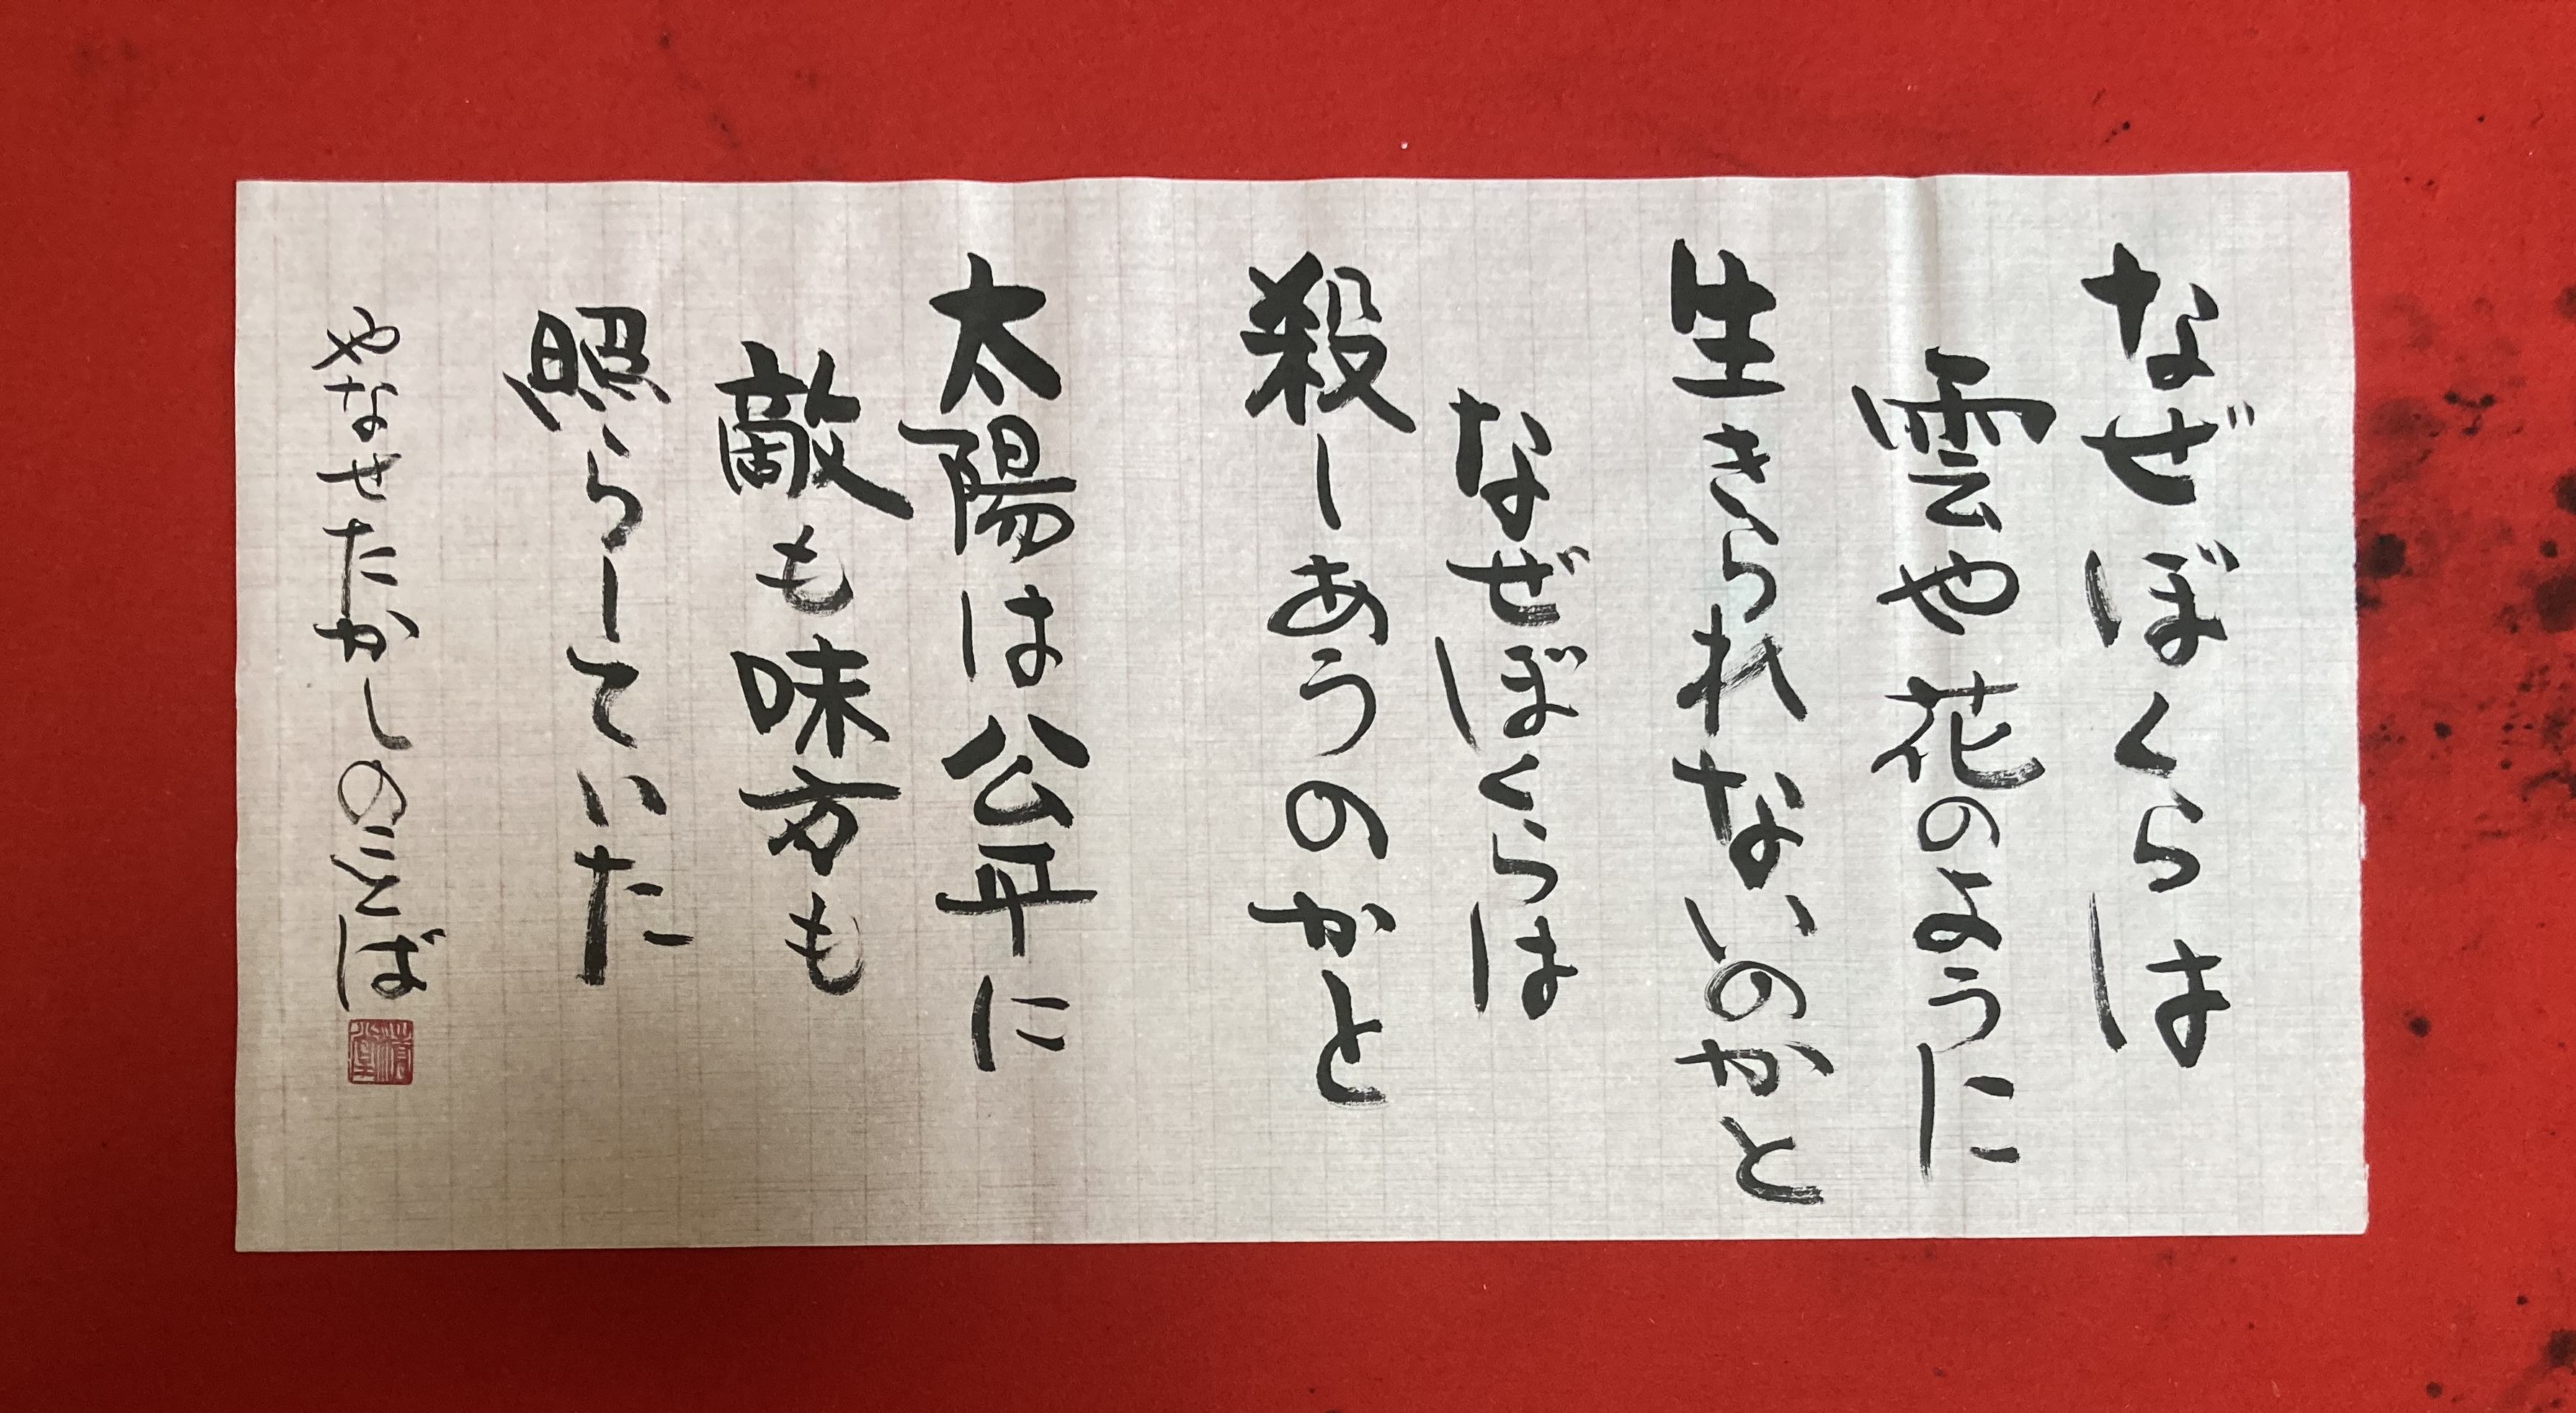 なぜぼくらは
雲や花のように
生きられないのかと
なぜぼくらは
殺しあうのかと
太陽は公平に
敵も味方も
照らしていた
やなせたかしのことば